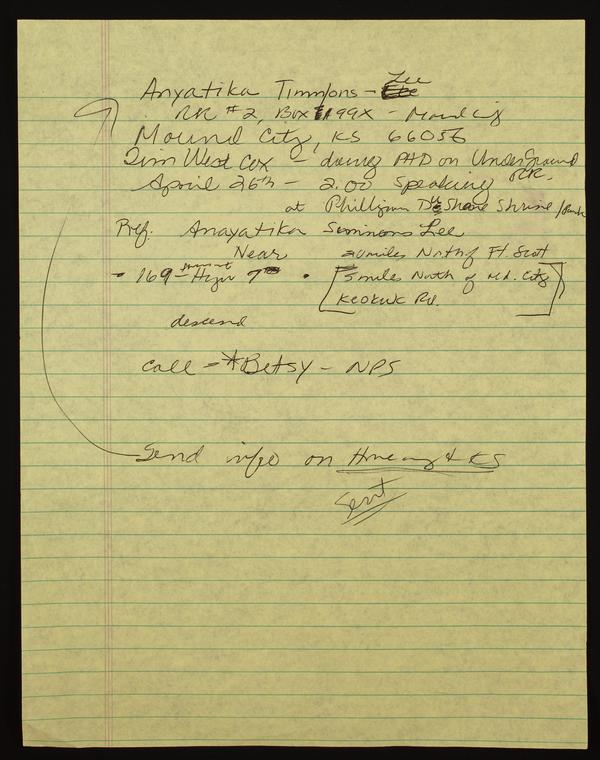 Anyatika Timmons - Lee
RR #2, Box 199X - Mound City
Mound City, KS 66056
Tim West Cox - doing PHD on UnderGround
RR.
April 26th - 2:00 speaking
at Shrine
Prof. Anayatika Simmons Lee
Near miles North of Ft. Scott
169 - 7 5 miles North of M.d. City
Keokuk Rd.
descend
call - *Betsy - NPS
Send info on KS
Sent